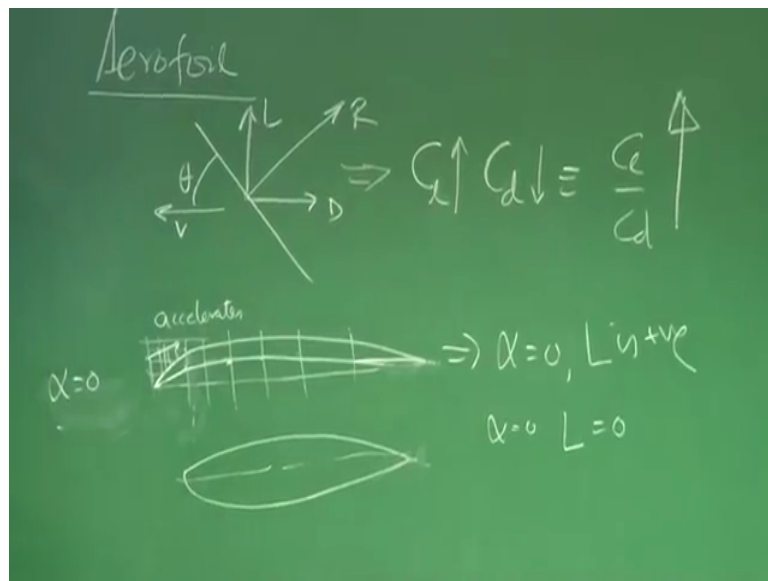 Aerofoil
L R
θ ⇒ Cl↑ Cd↓ ≡ Cl/Cd ↑
V D
accelerates
α=0 ⇒ α=0, L is +ve
α=0 L=0